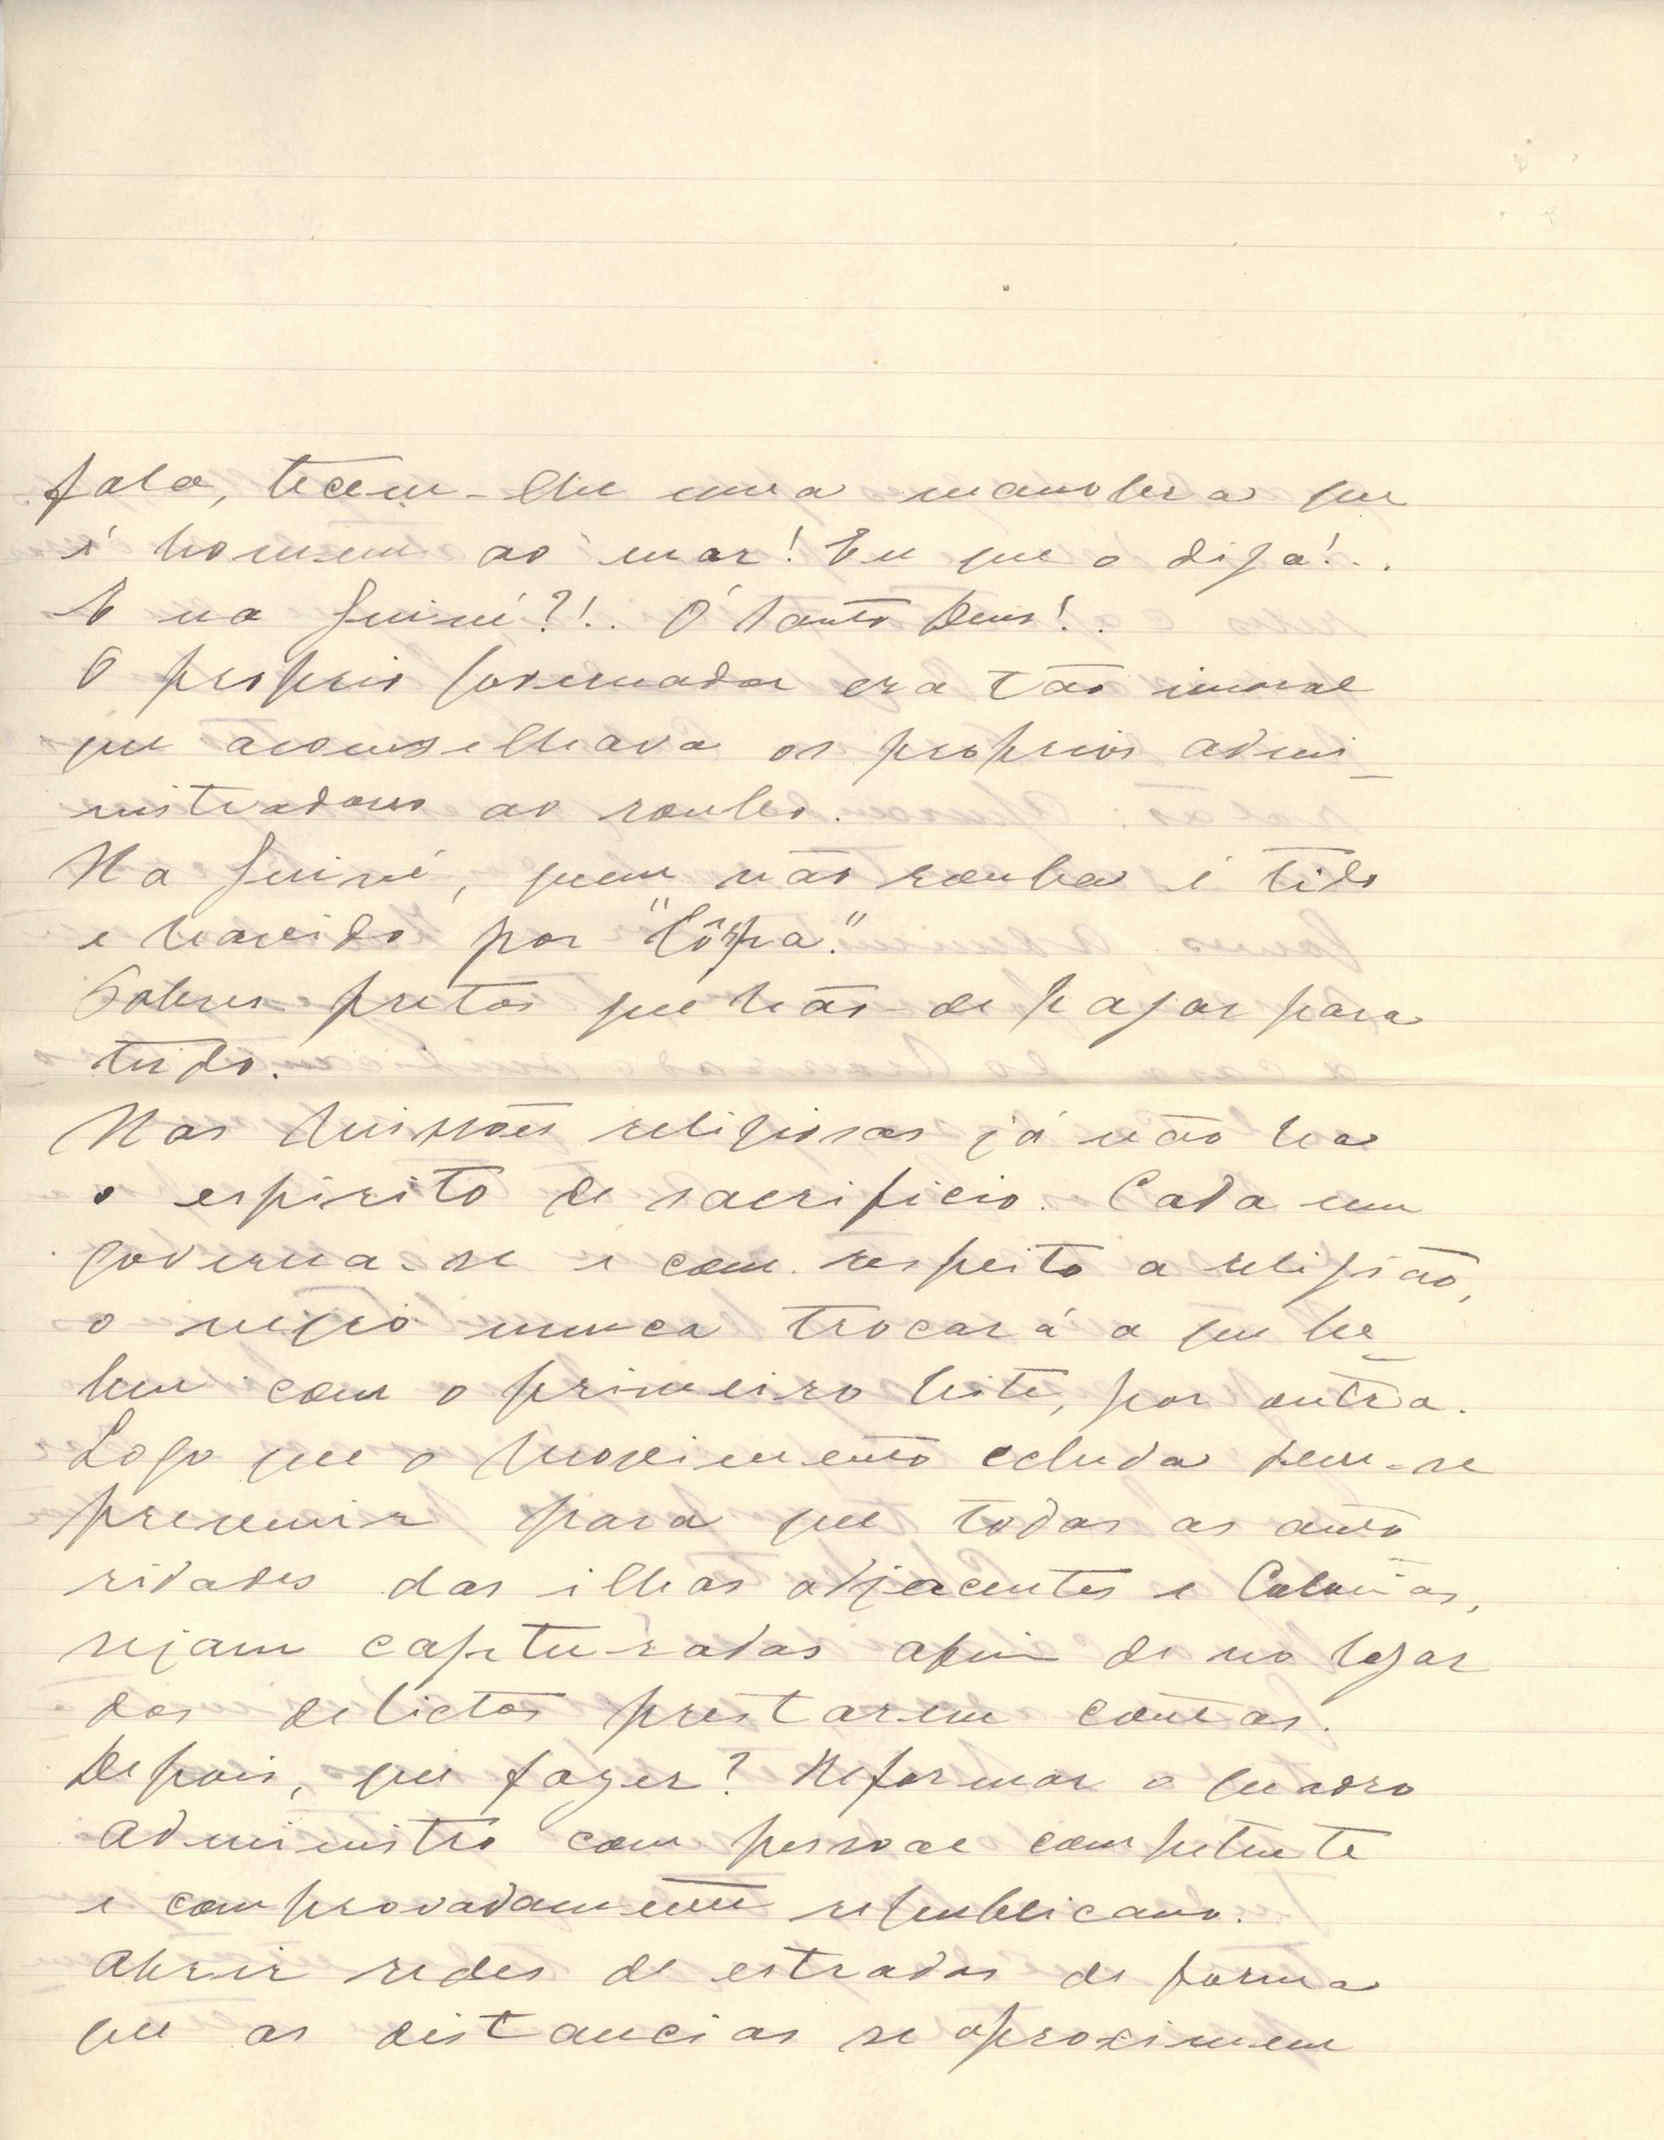 fala, tecem-lhe uma manobra que
é homem ao mar! Eu que o diga!..
E na Guiné?!.. Ó Santo Deus!..
O proprio governador era tão imoral
que aconselhava os proprios admi-
nistradores ao roubo.
Na Guiné, quem não rouba é tido
e havido por "Côrpa".
Pobres pretos que hão-de pagar para
tudo.
Nas Missões religiosas já não ha
o espirito de sacrificio. Cada um
governa-se e com respeito a religião,
o negro nunca trocará a que be-
beu com o primeiro leite, por outra.
Logo que o movimento ecluda deve-se
prevenir para que todas as auto
ridades das ilhas adjacentes e Colonias,
sejam capturadas afim de no logar
dos delictos prestarem contas.
Depois, que fazer? Reformar o quadro
administro com pessoal competente
e comprovadamente republicano.
Abrir redes de estradas de forma
que as distancias se aproximem